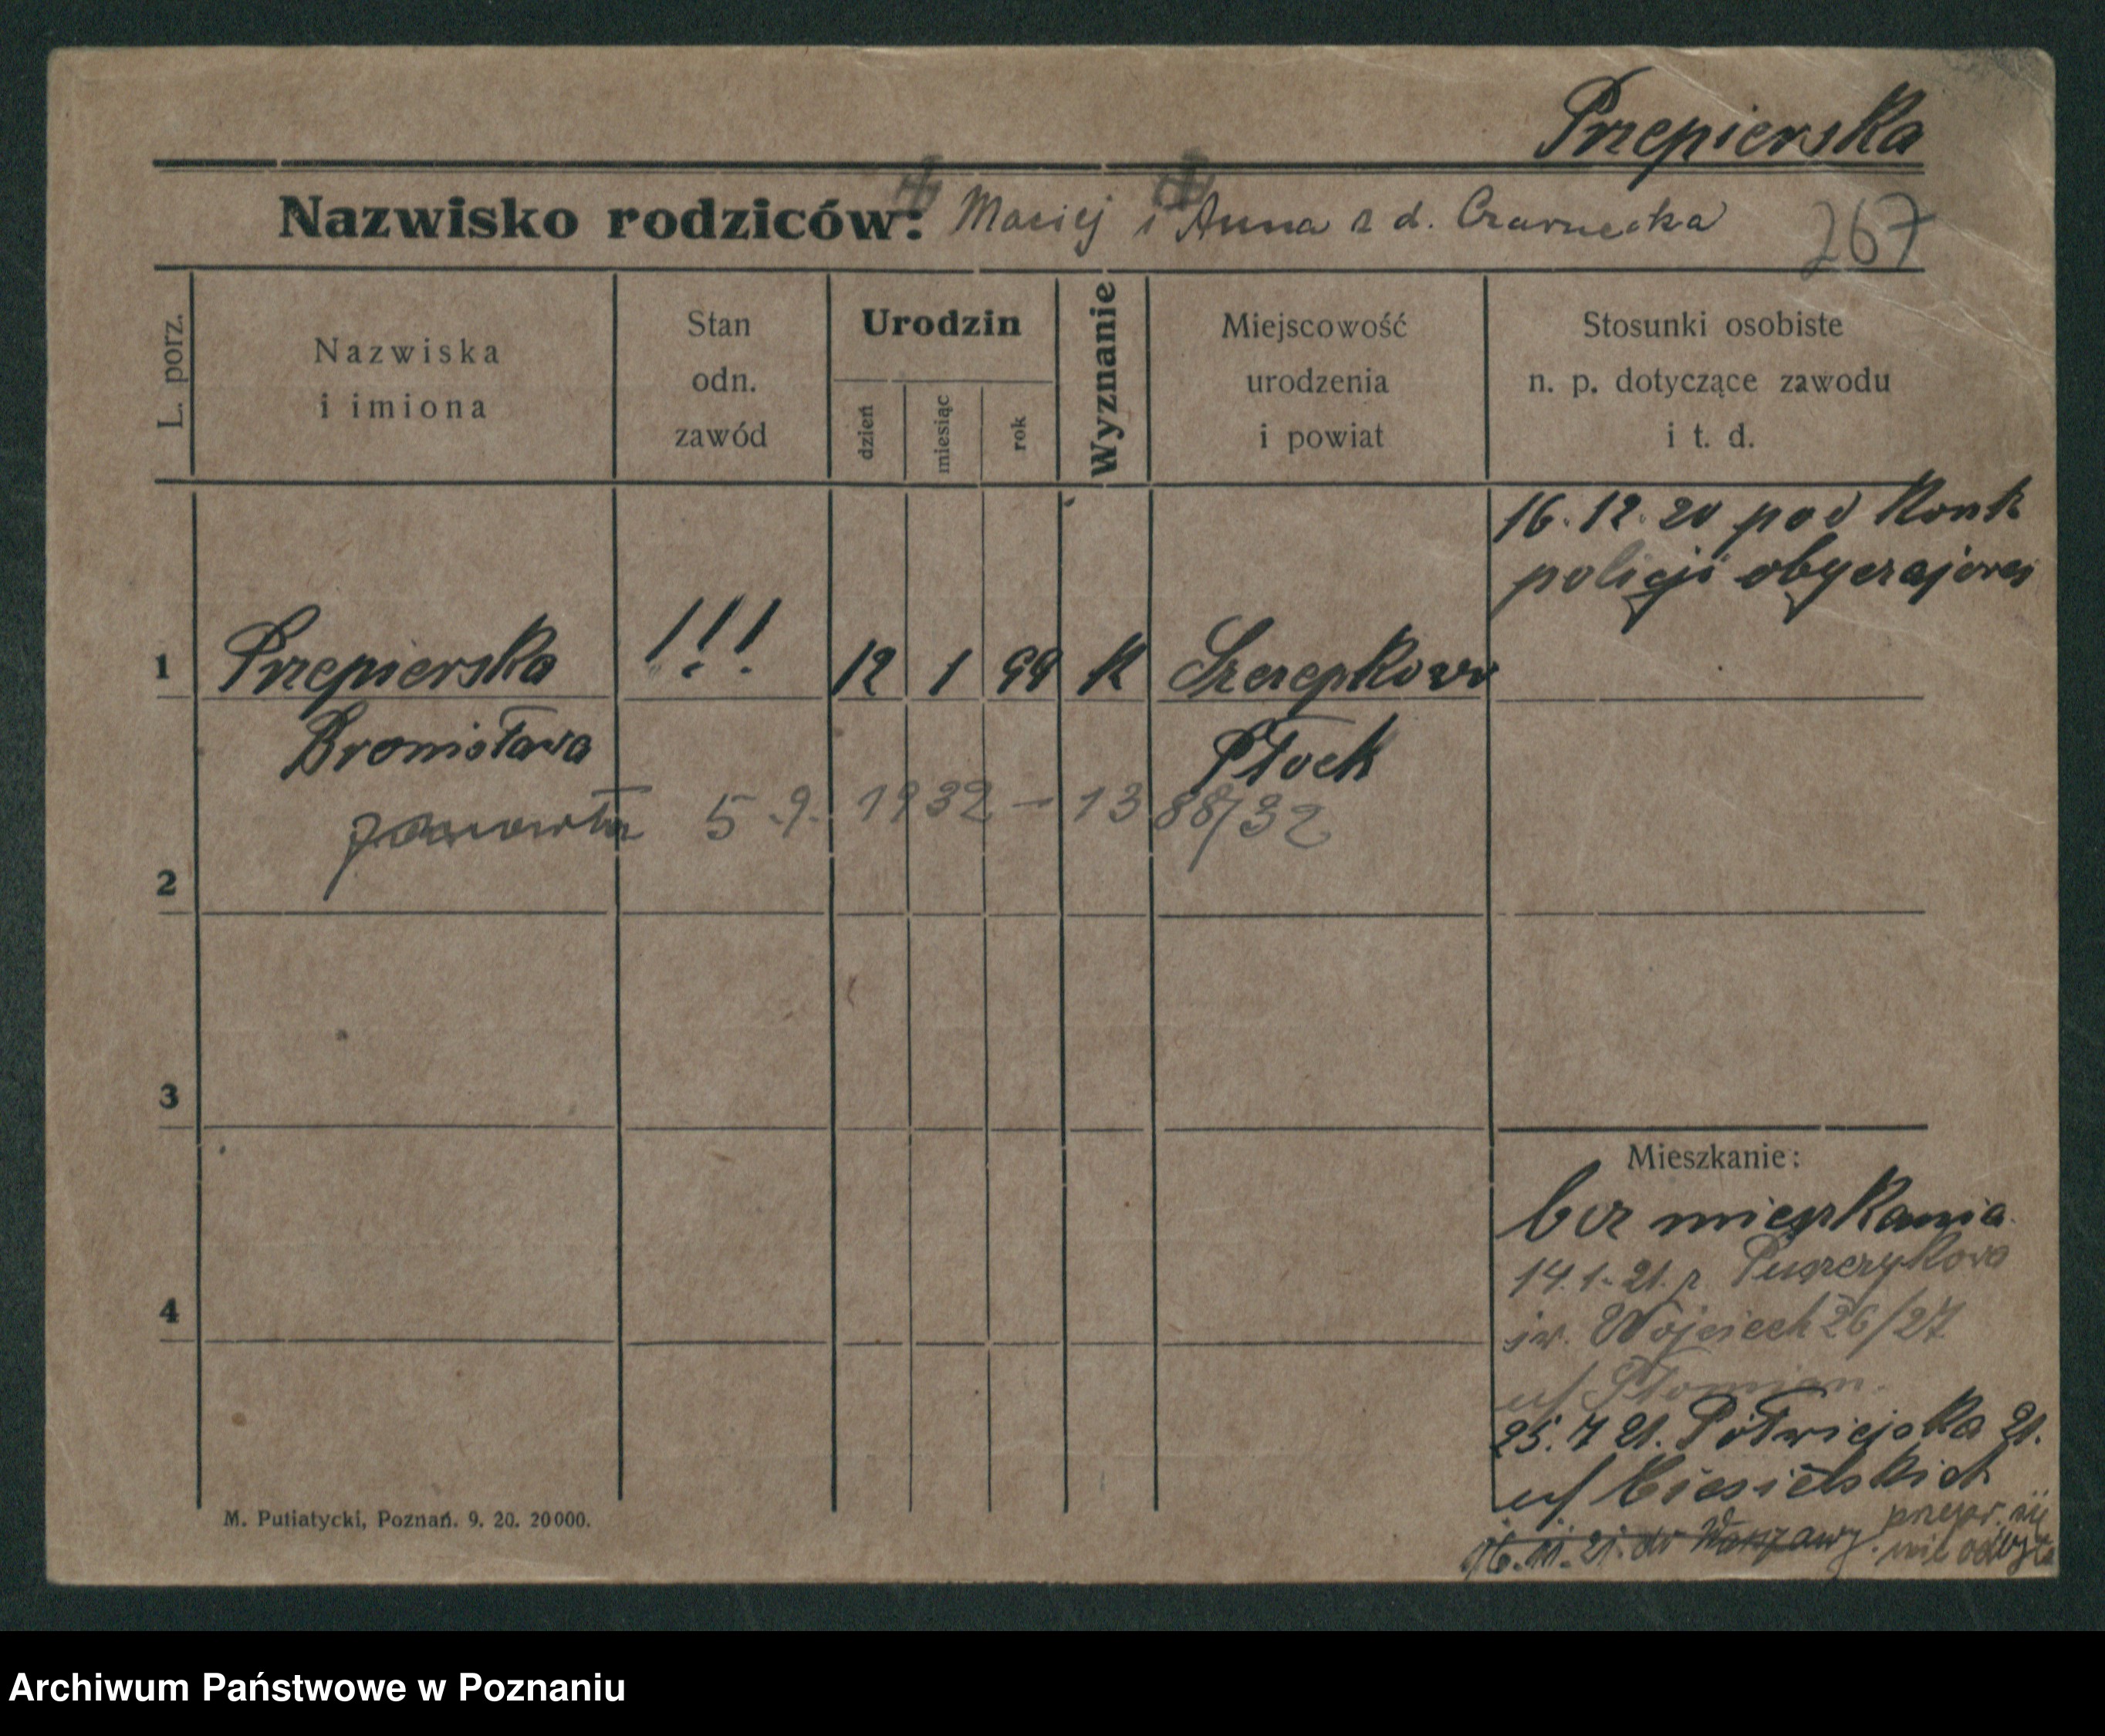 Przepierska
Nazwisko rodziców: Maciej i Anna z d. Czarnecka
267
L. porz.
Nazwiska i imiona
Stan odn. zawód
Urodzin
dzień
miesiąc
rok
Wyznanie
Miejscowość urodzenia i powiat
Stosunki osobiste n. p. dotyczące zawodu i t. d.
16. 12. 20 pod Kont
policji obyczajowej
1 Przepierska !!! 12 1 99 K Szczepkowo
Bronisława Płock
5.9. 1932 - 1388/32
2
3
Mieszkanie:
bez mieszkania
14.1.21. z
św. Wojciech 26/27
u/
25. 7 21. Półwiejska 21.
u/ Ciesielskich
4
16. 11. 21. do Warszawy. przepr. się
nie odbyła
M. Putiatycki, Poznań. 9. 20. 20 000.
Archiwum Państwowe w Poznaniu